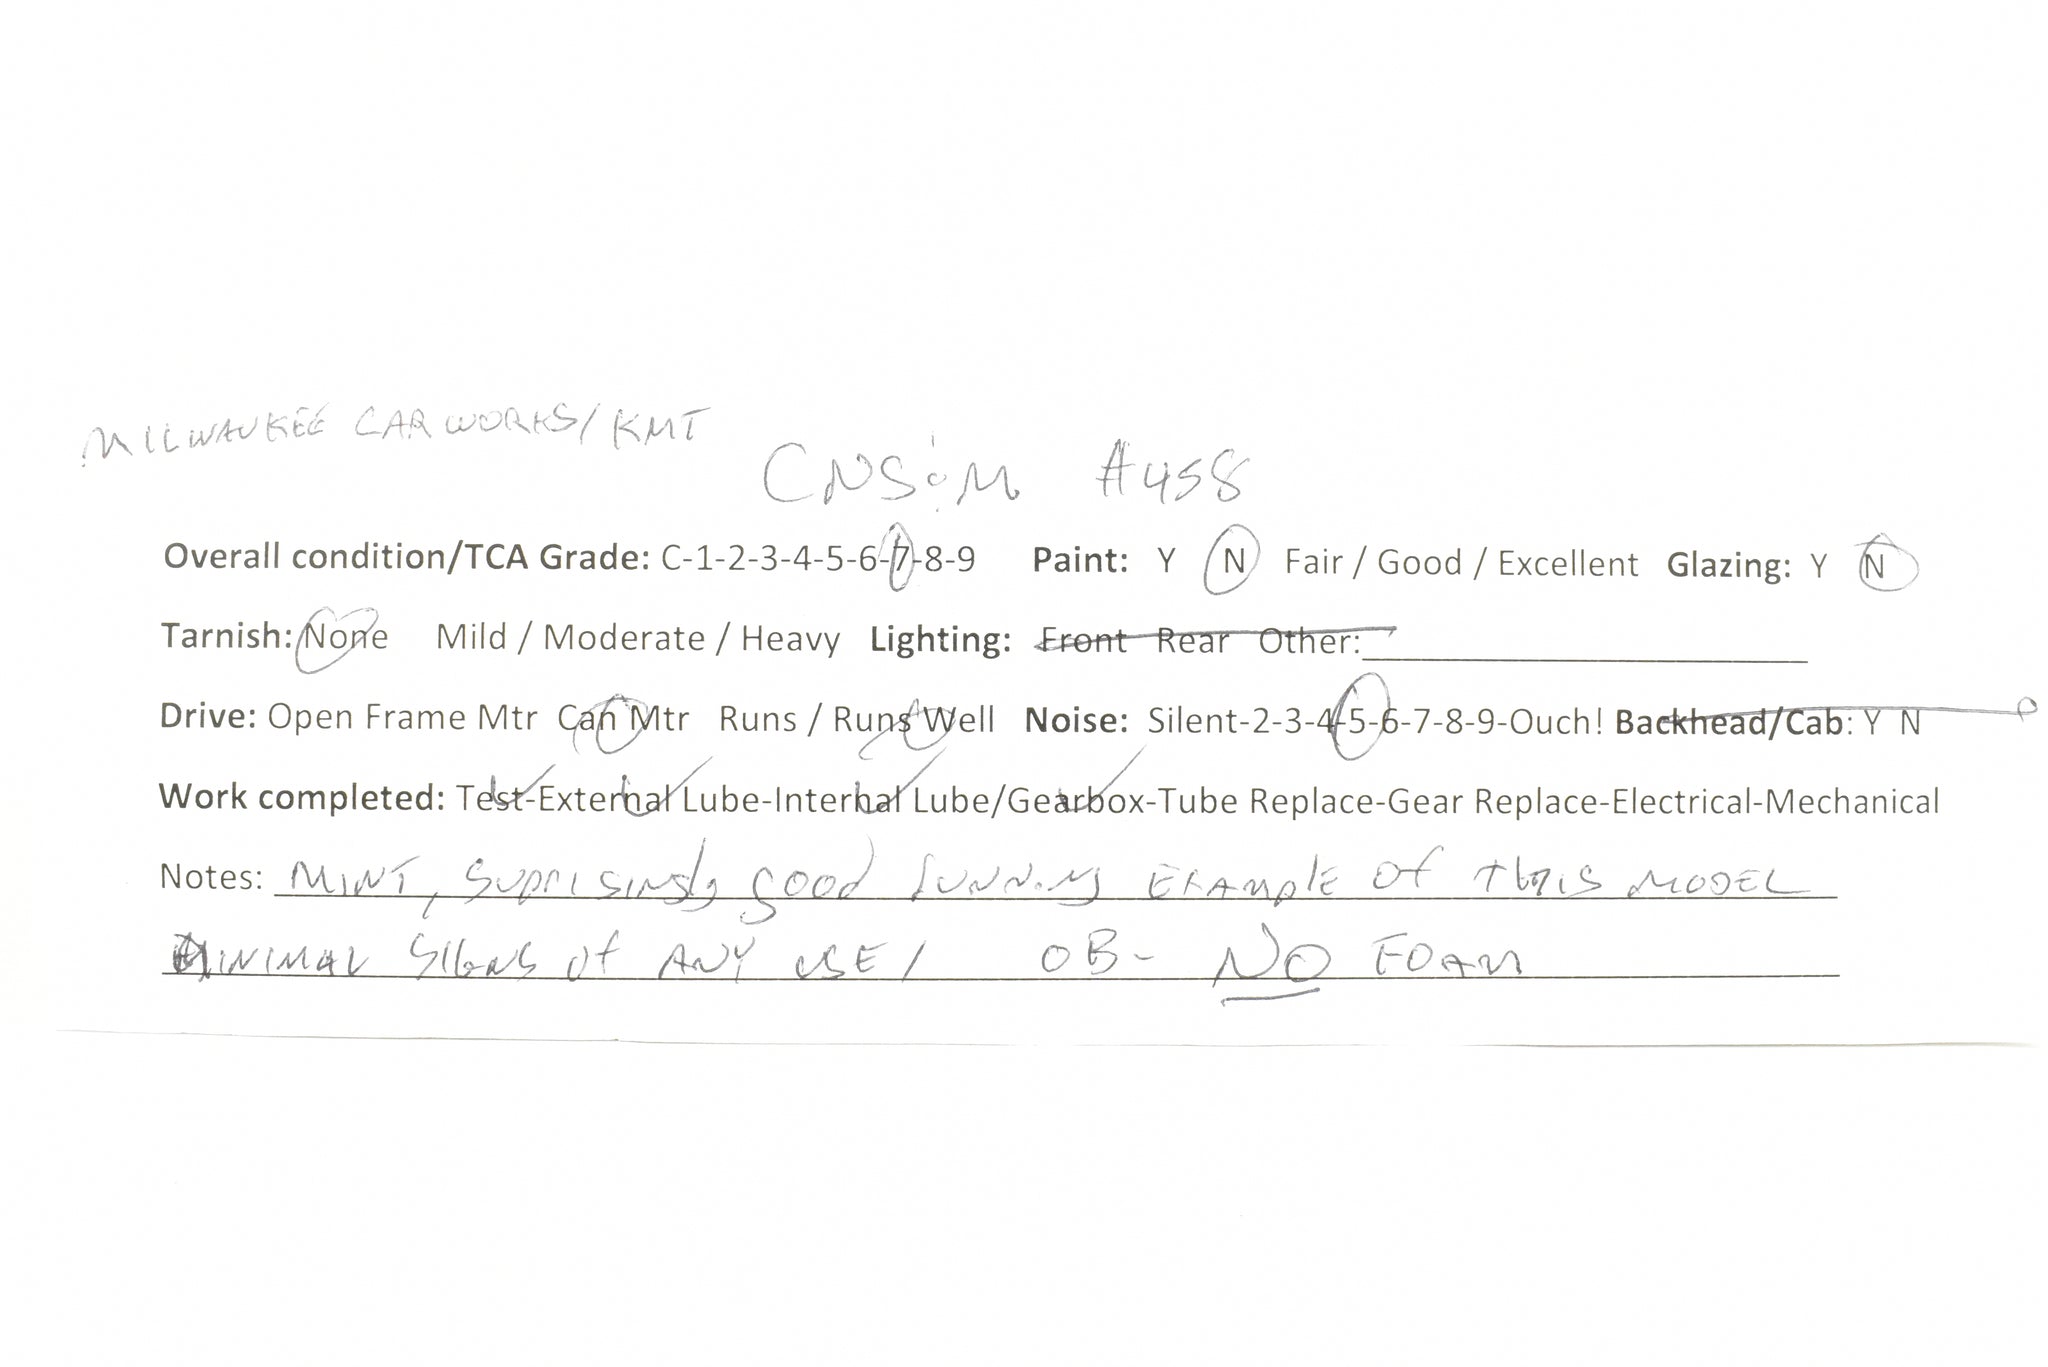 MILWAUKEE CAR WORKS/KMT
CNS&M #458
Overall condition/TCA Grade: C-1-2-3-4-5-6-7-8-9 Paint: Y N Fair / Good / Excellent Glazing: Y N
Tarnish: None Mild / Moderate / Heavy Lighting: Front Rear Other:
Drive: Open Frame Mtr Can Mtr Runs / Runs Well Noise: Silent-2-3-4-5-6-7-8-9-Ouch! Backhead/Cab: Y N
Work completed: Test-External Lube-Internal Lube/Gearbox-Tube Replace-Gear Replace-Electrical-Mechanical
Notes: MINT, SUPRISINGLY GOOD RUNNING EXAMPLE OF THIS MODEL
MINIMAL SIGNS OF ANY USE/ OB- NO FOAM